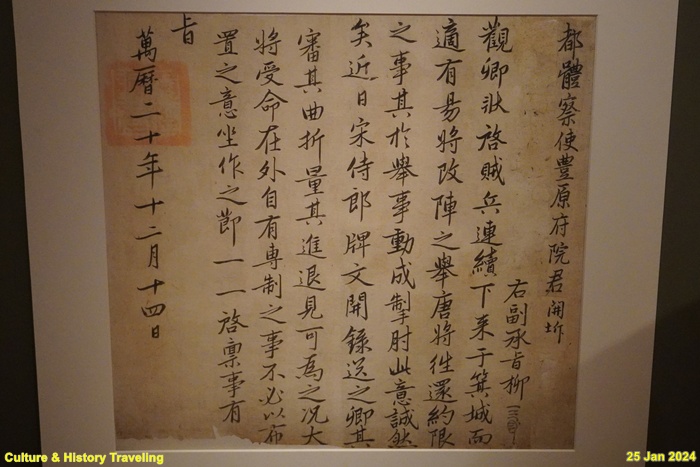 都體察使豊原府院君開坼
右副承旨柳
觀卿狀啓賊兵連續下来于箕城而
適有昜將改陣之舉唐將徃還約限
之事其於舉事動成掣肘此意誠然
矣近日宋侍郎牌文開錄送之卿其
審其曲折量其進退見可為之况大
將受命在外自有専制之事不必以布
置之意坐作之節一一啓禀事有
旨
萬曆二十年十二月十四日
Culture & History Traveling
25 Jan 2024